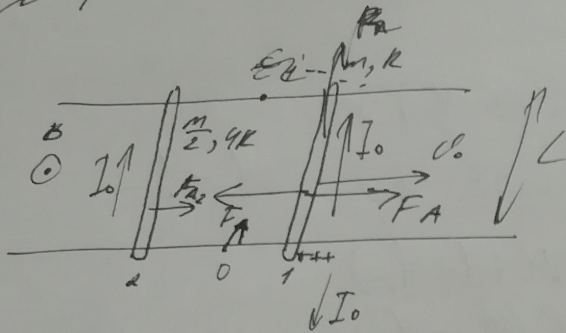 F_A
ε_i m, R
B
m/2, 4R
I₀
I₀
v₀
L
F_A2
F
F_A
2 0 1
I₀